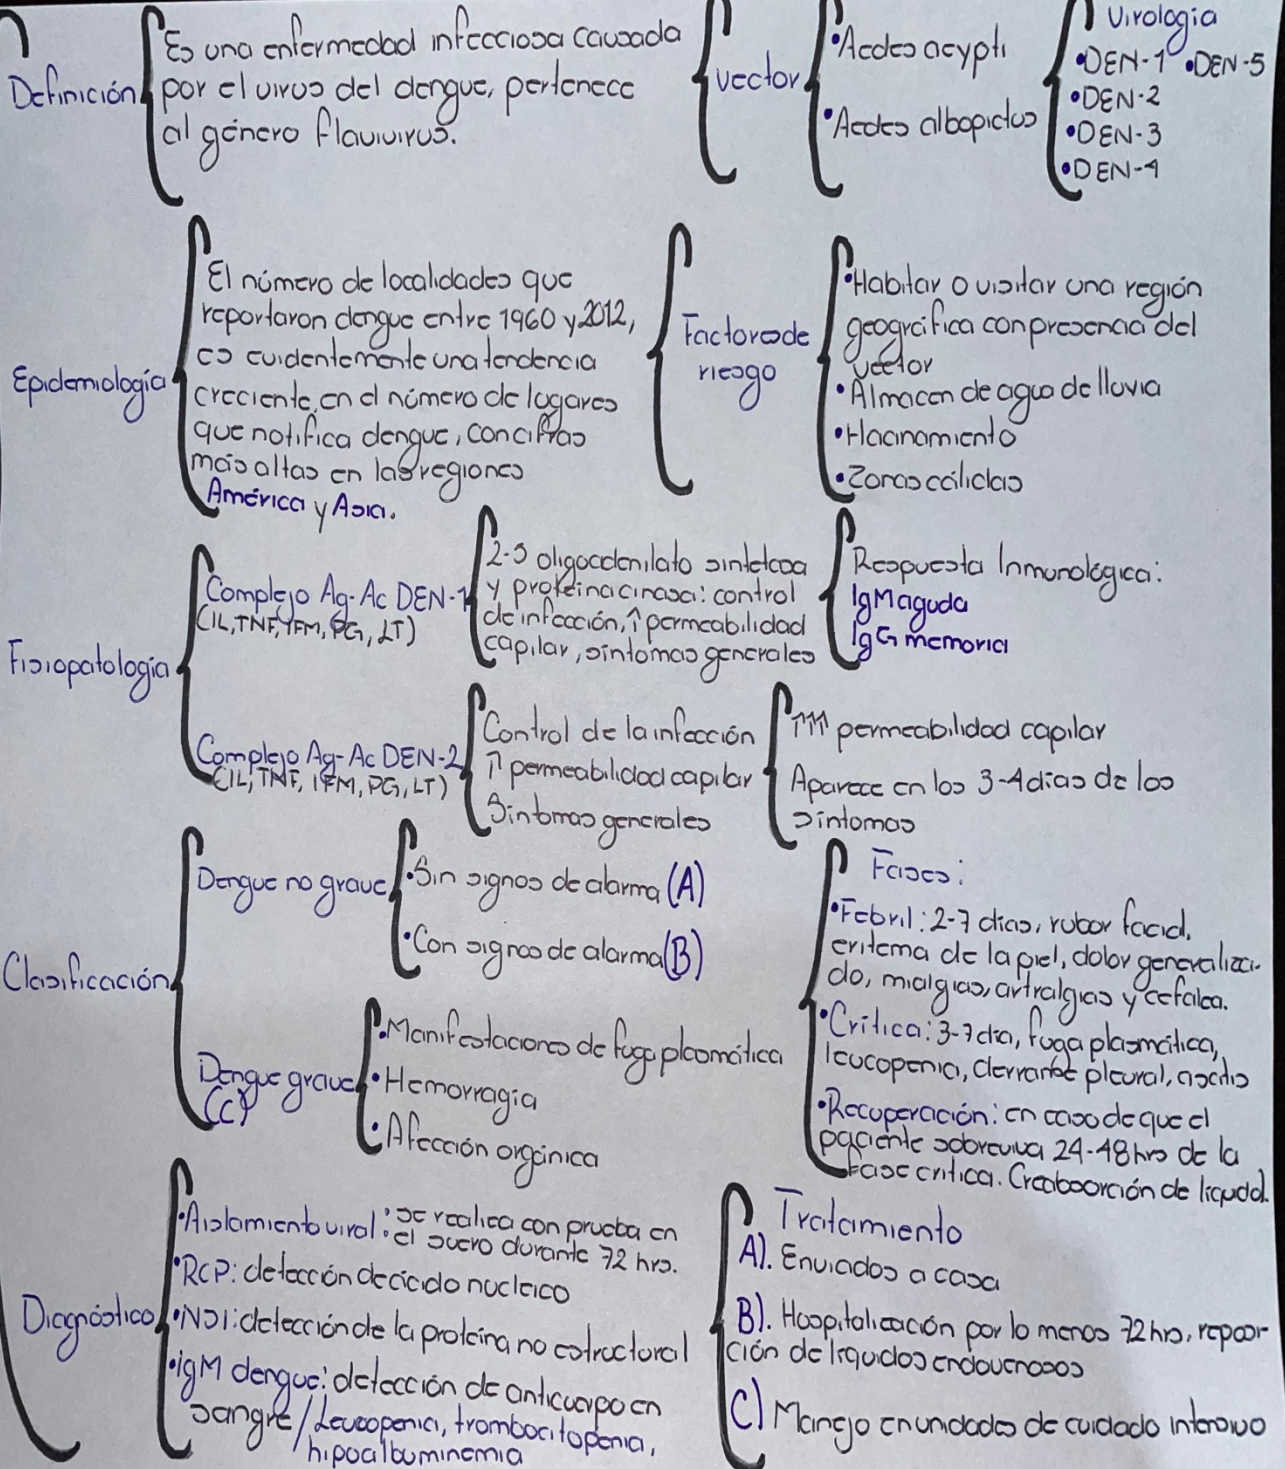 Definición
Es una enfermedad infecciosa causada
por el virus del dengue, pertenece
al género flavivirus.
vector
•Aedes aeypti
•Aedes albopictus
Virología
•DEN-1 •DEN-5
•DEN-2
•DEN-3
•DEN-4
Epidemiología
El número de localidades que
reportaron dengue entre 1960 y 2012,
es evidentemente una tendencia
creciente, en el número de lugares
que notifica dengue, con cifras
más altas en las regiones
América y Asia.
Factores de
riesgo
•Habitar o visitar una región
geográfica con presencia del
vector
•Almacen de agua de lluvia
•Hacinamiento
•Zonas cálidas
Fisiopatología
Complejo Ag-Ac DEN-1
(IL, TNF, IFM, PG, LT)
2-5 oligoadenilato sintetasa
y proteina cinasa: control
de infección, ↑ permeabilidad
capilar, síntomas generales
Respuesta Inmunológica:
IgM aguda
IgG memoria
Complejo Ag-Ac DEN-2
(IL, TNF, IFM, PG, LT)
Control de la infección
↑ permeabilidad capilar
Síntomas generales
↑↑↑ permeabilidad capilar
Aparece en los 3-4 dias de los
síntomas
Clasificación
Dengue no grave
•Sin signos de alarma (A)
•Con signos de alarma (B)
Dengue grave
(C)
•Manifestaciones de fuga plasmática
•Hemorragia
•Afección orgánica
Fases:
•Febril: 2-7 dias, rubor facial,
eritema de la piel, dolor generaliza-
do, mialgias, artralgias y cefalea.
•Crítica: 3-7 dia, fuga plasmática,
leucopenia, derrame pleural, ascitis
•Recuperación: en caso de que el
paciente sobreviva 24-48 hrs de la
fase critica. Creabsorción de liquido).
Diagnóstico
•Aislamiento viral: se realiza con prueba en
el suero durante 72 hrs.
•RCP: detección de ácido nucleico
•NS1: detección de la proteína no estructural
•IgM dengue: detección de anticuerpo en
sangre/Leucopenia, trombocitopenia,
hipoalbuminemia
Tratamiento
A). Enviados a casa
B). Hospitalización por lo menos 72 hrs, reposi-
ción de líquidos endovenosos
C) Manejo en unidades de cuidado intensivo